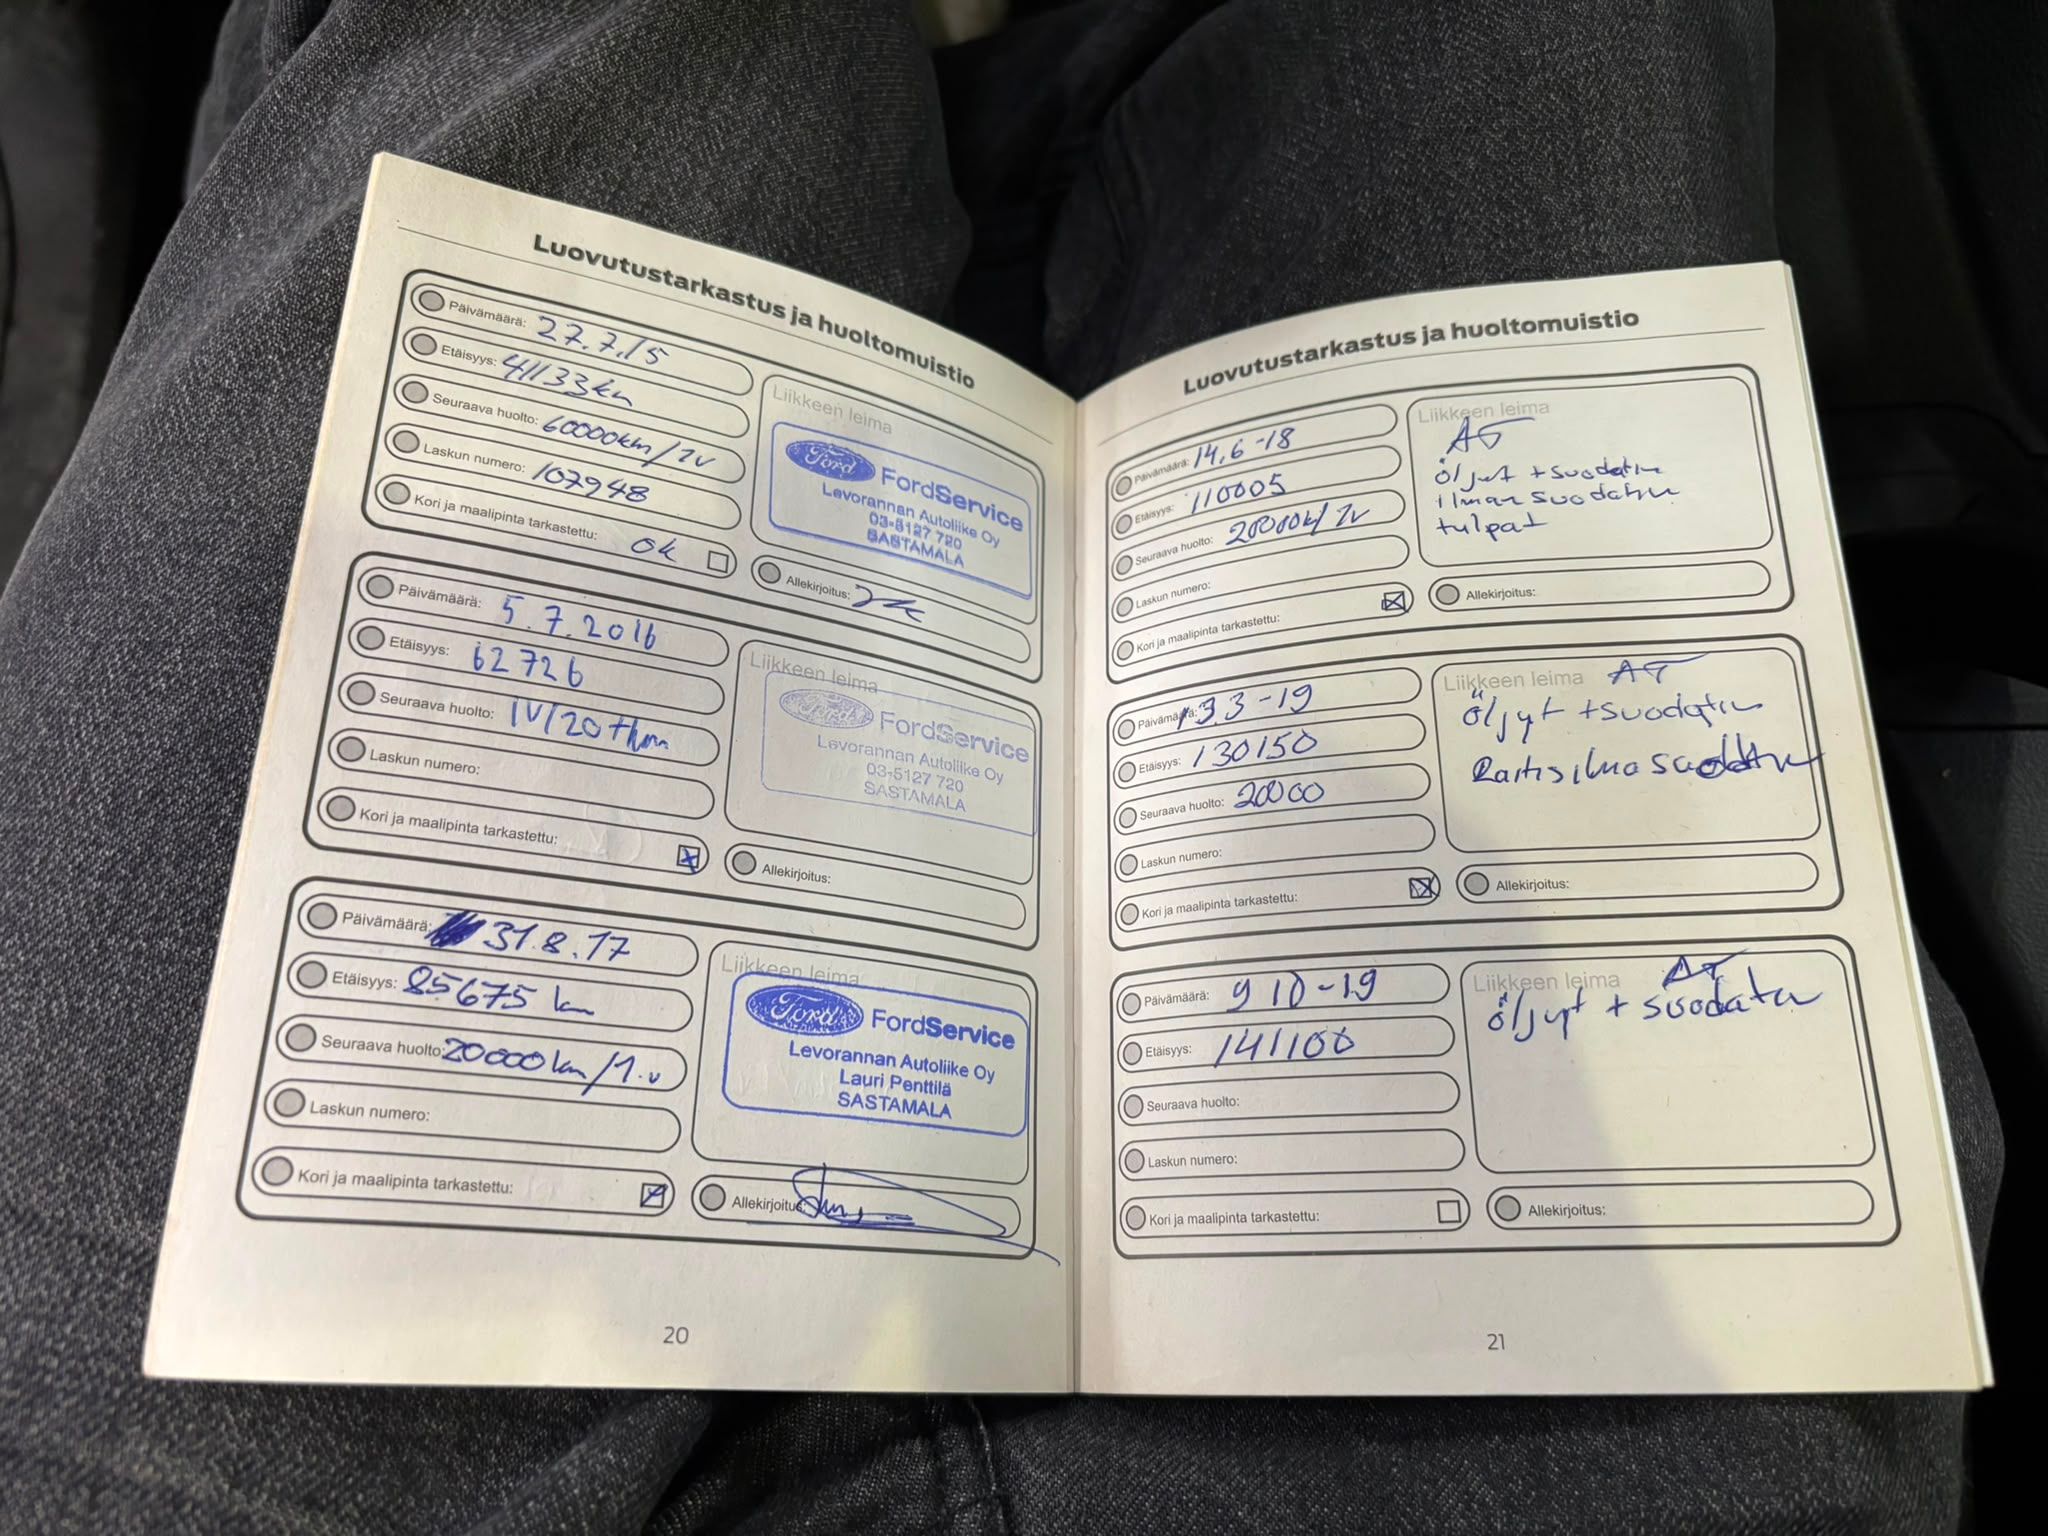 Luovutustarkastus ja huoltomuistio
Päivämäärä: 27.7.15
Etäisyys: 41133km
Seuraava huolto: 60000km/1v
Laskun numero: 107948
Kori ja maalipinta tarkastettu: ok
Liikkeen leima
Ford FordService
Levorannan Autoliike Oy
03-5127 720
SASTAMALA
Allekirjoitus:
Päivämäärä: 5.7.2016
Etäisyys: 62726
Seuraava huolto: 1V/20 tkm
Laskun numero:
Kori ja maalipinta tarkastettu:
Liikkeen leima
Ford FordService
Levorannan Autoliike Oy
03-5127 720
SASTAMALA
Allekirjoitus:
Päivämäärä: 31.8.17
Etäisyys: 85675 km
Seuraava huolto: 20000 km/1.v
Laskun numero:
Kori ja maalipinta tarkastettu:
Liikkeen leima
Ford FordService
Levorannan Autoliike Oy
Lauri Penttilä
SASTAMALA
Allekirjoitus:
20
Luovutustarkastus ja huoltomuistio
Päivämäärä: 14.6-18
Etäisyys: 110005
Seuraava huolto: 20000k/1v
Laskun numero:
Kori ja maalipinta tarkastettu:
Liikkeen leima
AT
Öljyt + suodatin
ilman suodatin
tulpat
Allekirjoitus:
Päivämäärä: 13.3-19
Etäisyys: 130150
Seuraava huolto: 20000
Laskun numero:
Kori ja maalipinta tarkastettu:
Liikkeen leima AT
Öljyt + suodatin
Raitisilmasuodatin
Allekirjoitus:
Päivämäärä: 9 10-19
Etäisyys: 141100
Seuraava huolto:
Laskun numero:
Kori ja maalipinta tarkastettu:
Liikkeen leima AT
öljyt + suodatin
Allekirjoitus:
21